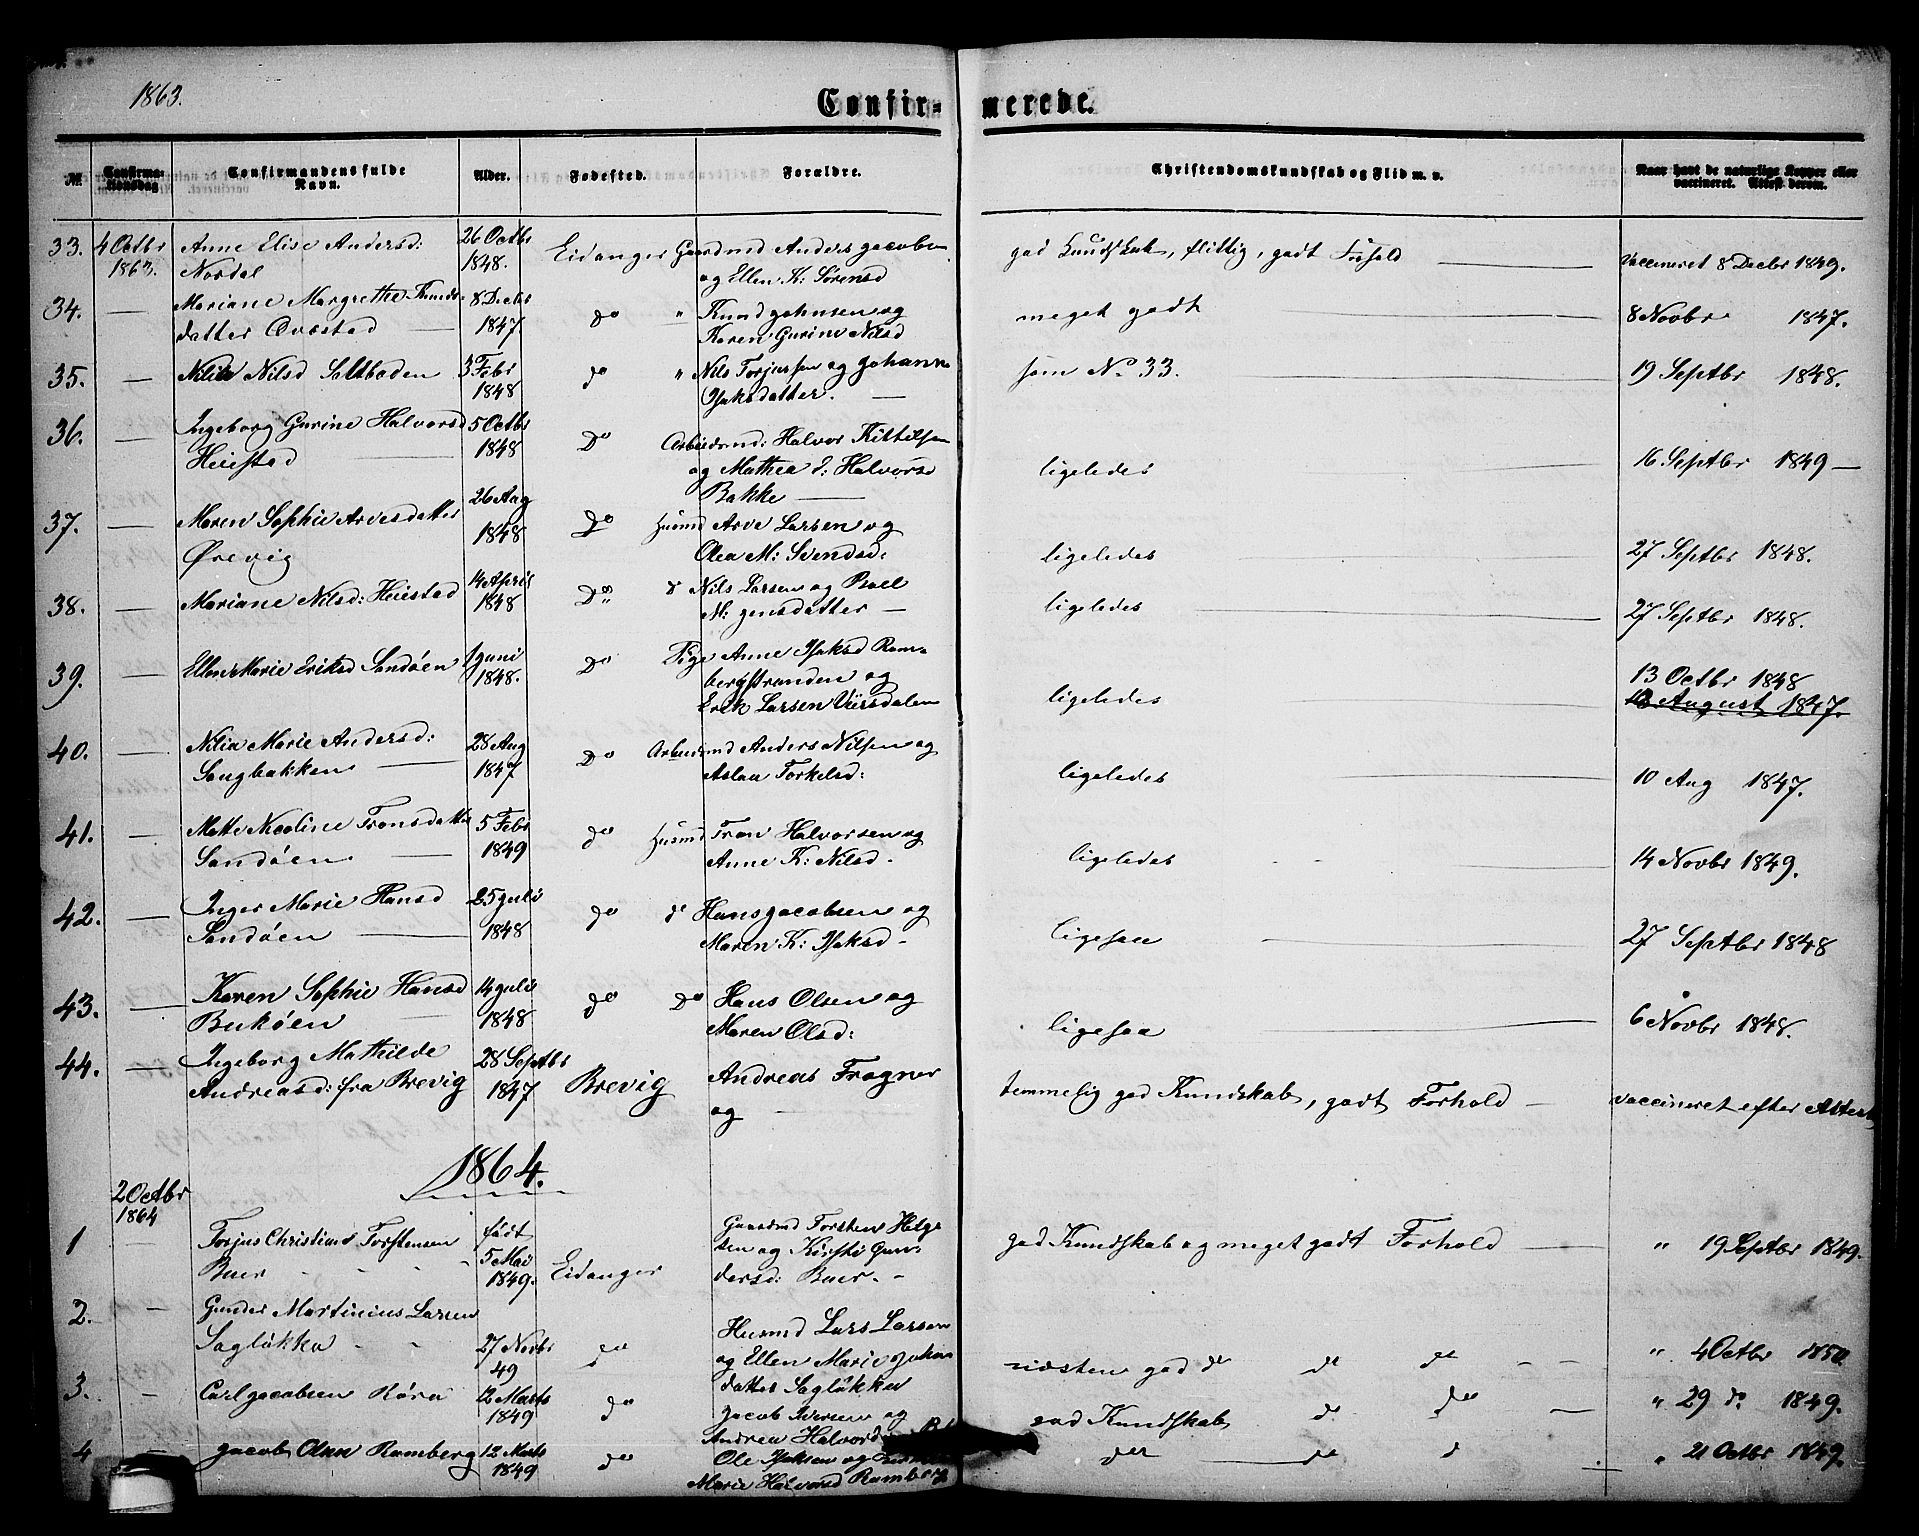 1863.
Confir-
merede.
№
Confirma-
tionsdag
Confirmandens fulde
Navn.
Alder.
Fødested.
Forældre.
Christendomskundskab og Flid m. v.
Naar havt de naturlige Kopper eller
vaccineret. Attest derom.
33. 4 Octbr Anne Elise Andersd: 26 Octbr Eidanger Gaardmd Anders Jacobsen god Kundskab, flittig, godt Forhold Vaccineret 8 Decbr 1849.
1863. Nordal 1848. og Ellen K: Sørensd
34. Mariane Margrethe Knuds- 8 Decbr do " Knud Johnsen og meget godt 8 Novbr 1847.
datter Ovrstad 1847. Karen Gurine Nilsd
35. Nilia Nilsd Saltboden 3 Febr do " Nils Torjussen og Johanne som No 33. 19 Septbr 1848.
1848 Isaksdatter.
36. Ingeborg Gurine Halvorsd 5 Octbr Do Arbeidsmd: Halvor Kittilsen 16 Septbr 1849
Heistad 1848 og Mathea d: Halvorsd ligeledes
Bakke
37. Maren Sophie Arvesdatter 26 Aug Do Husmd Arve Larsen og
Ørevig 1848 Olea M: Svendsd: ligeledes 27 Septbr 1848.
38. Mariane Nilsd: Heistad 14 April Do d Nils Larsen og Boel ligeledes 27 Septbr 1848.
1848 M: Jensdatter
39. Ellen Marie Eriksd Sandøen 1 Juni Do Pige Anne Isaksd Ram- 13 Octbr 1848
1848. bergstranden og ligeledes August 1847.
Erik Larsen Versdalen
40. Nilia Marie Andersd: 28 Aug Do Arbeidsmd Anders Nilsen og ligeledes 10 Aug 1847.
Langbakken 1847 Aslau Torkelsd:
41. Mette Nicoline Tronsdatter 5 Febr do Husmd Tron Halvorsen og ligeledes 14 Novbr 1849.
Sandøen 1849 Anne K: Nilsd
42. Inger Marie Hansd 25 Juli do d Hans Jacobsen og ligesaa 27 Septbr 1848
Sandøen 1848 Maren K: Isaksd
43. Karen Sophie Hansd 14 Juli do Do Hans Olsen og ligesaa 6 Novbr 1848.
Bukøen 1848 Maren Olsd:
44. Ingeborg Mathilde 28 Septbr Brevig Andreas Fragner temmelig god Kundskab, godt Forhold vaccineret efter Attest
Andreasd: fra Brevig 1847 og
1864.
2 Octbr
1864
1 Torjus Christian Torstensen født Gaardmd Torsten Helge- god Kundskab og meget godt Forhold " 19 Septbr 1849.
Buer 5 Mai Eidanger sen og Kirsti Gun-
1849. dersd: Buer.
2. Gunder Martinius Larsen Husmd Lars Larsen
Sagløkka 27 Novbr do og Ellen Marie Johan næsten god do do do " 4 Octbr 1850
49 datter Sagløkka
3. Carl Jacobsen Røra 12 Marts do Jacob Iversen og god Kundskab do do " 29 do 1849.
1849 Andrea Halvorsd
4 Jacob Olsen Ramberg 12 Marts do Ole Isaksen og do do d " 21 Octbr 1849.
1849 Marie Halvorsd Ramberg